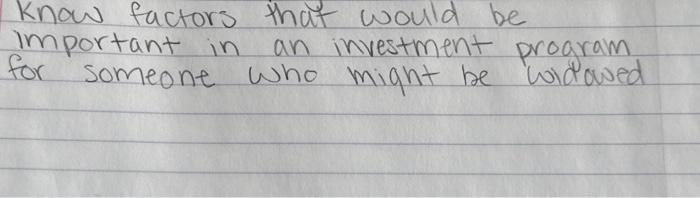 Know factors that would be
important in an investment program
for someone who might be widowed